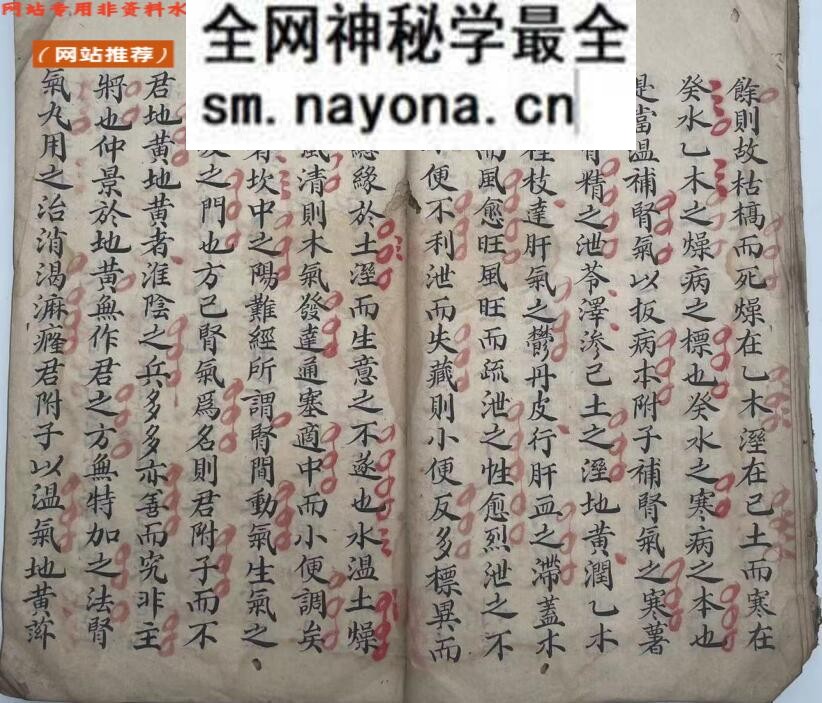 网站专用非资料水
(网站推荐)
全网神秘学最全
sm.nayona.cn
餘則故枯槁而死燥在乙木溼在己土而寒在
癸水乙木之燥病之標也癸水之寒病之本也
是當温補腎氣以扳病本附子補腎氣之寒薯
精之泄苓澤滲己土之溼地黄潤乙木
桂枝達肝氣之鬱丹皮行肝血之滯蓋木
而風愈旺風旺而疏泄之性愈烈泄之不
便不利泄而失藏則小便反多標異而
緣於土溼而生意之不遂也水温土燥
風清則木氣發達通塞適中而小便調矣
坎中之陽難經所謂腎間動氣生氣之
之門也方已腎氣爲名則君附子而不
君地黄地黄者淮陰之兵多多亦善而究非主
將也仲景於地黄無作君之方無特加之法腎
氣丸用之治消渴淋癃君附子以温氣地黄